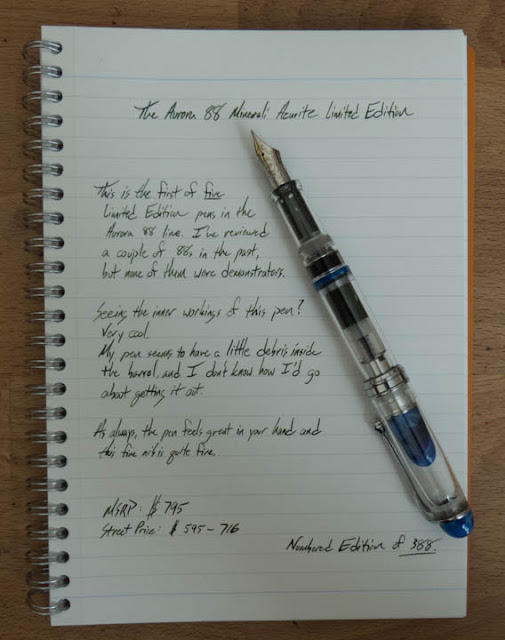 The Aurora 88 Minerali Azurite Limited Edition
This is the first of five
Limited Edition pens in the
Aurora 88 line. I've reviewed
a couple of 88s in the past,
but none of them were demonstrators.
Seeing the inner workings of this pen?
Very cool.
My pen seems to have a little debris inside
the barrel, and I don't know how I'd go
about getting it out.
As always, the pen feels great in your hand and
this fine nib is quite fine.
MSRP: $ 795
Street Price: $ 595 - 716
Numbered Edition of 388.